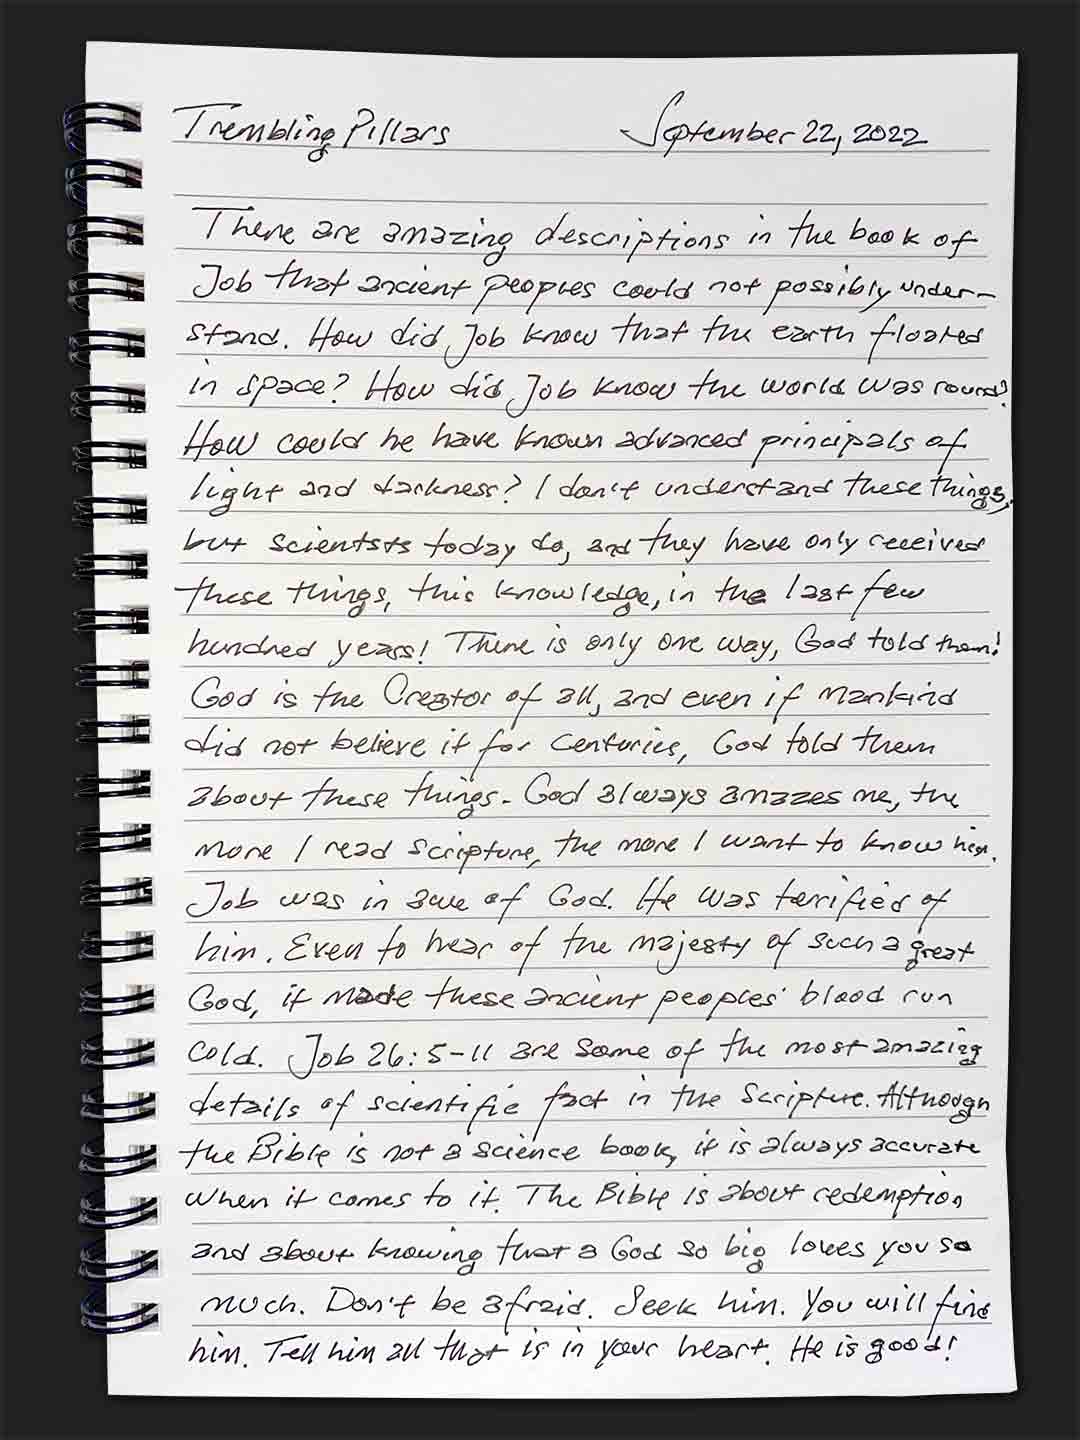 Trembling Pillars September 22, 2022
There are amazing descriptions in the book of
Job that ancient peoples could not possibly under-
stand. How did Job know that the earth floated
in space? How did Job know the world was round?
How could he have known advanced principals of
light and darkness? I don't understand these things,
but scientsts today do, and they have only received
these things, this knowledge, in the last few
hundred years! There is only one way, God told them!
God is the Creator of all, and even if mankind
did not believe it for centuries, God told them
about these things. God always amazes me, the
more I read scripture, the more I want to know him.
Job was in awe of God. He was terrified of
him. Even to hear of the majesty of such a great
God, it made these ancient peoples' blood run
cold. Job 26:5-11 are some of the most amazing
details of scientific fact in the Scripture. Although
the Bible is not a science book, it is always accurate
when it comes to it. The Bible is about redemption
and about knowing that a God so big loves you so
much. Don't be afraid. Seek him. You will find
him. Tell him all that is in your heart. He is good!